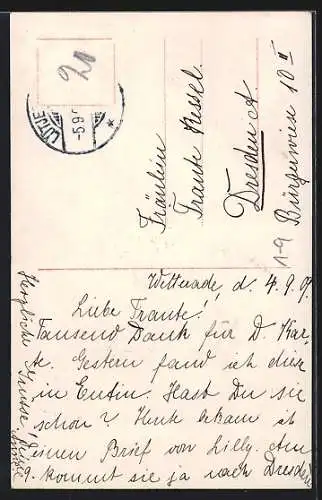 20
LÜTJE
-5.9.
Fräulein
Traute Kessel.
Dresden A.
Bürgerwiese 10 II
1-9
d. 4.9.09.
Liebe Traute!
Tausend Dank für D. Kar-
te. Gestern fand ich diese
in Eutin. Hast Du sie
schon? Heute bekam ich
einen Brief von Lilly. Am
9. kommt sie ja nach Dresden.
Herzliche Grüsse!